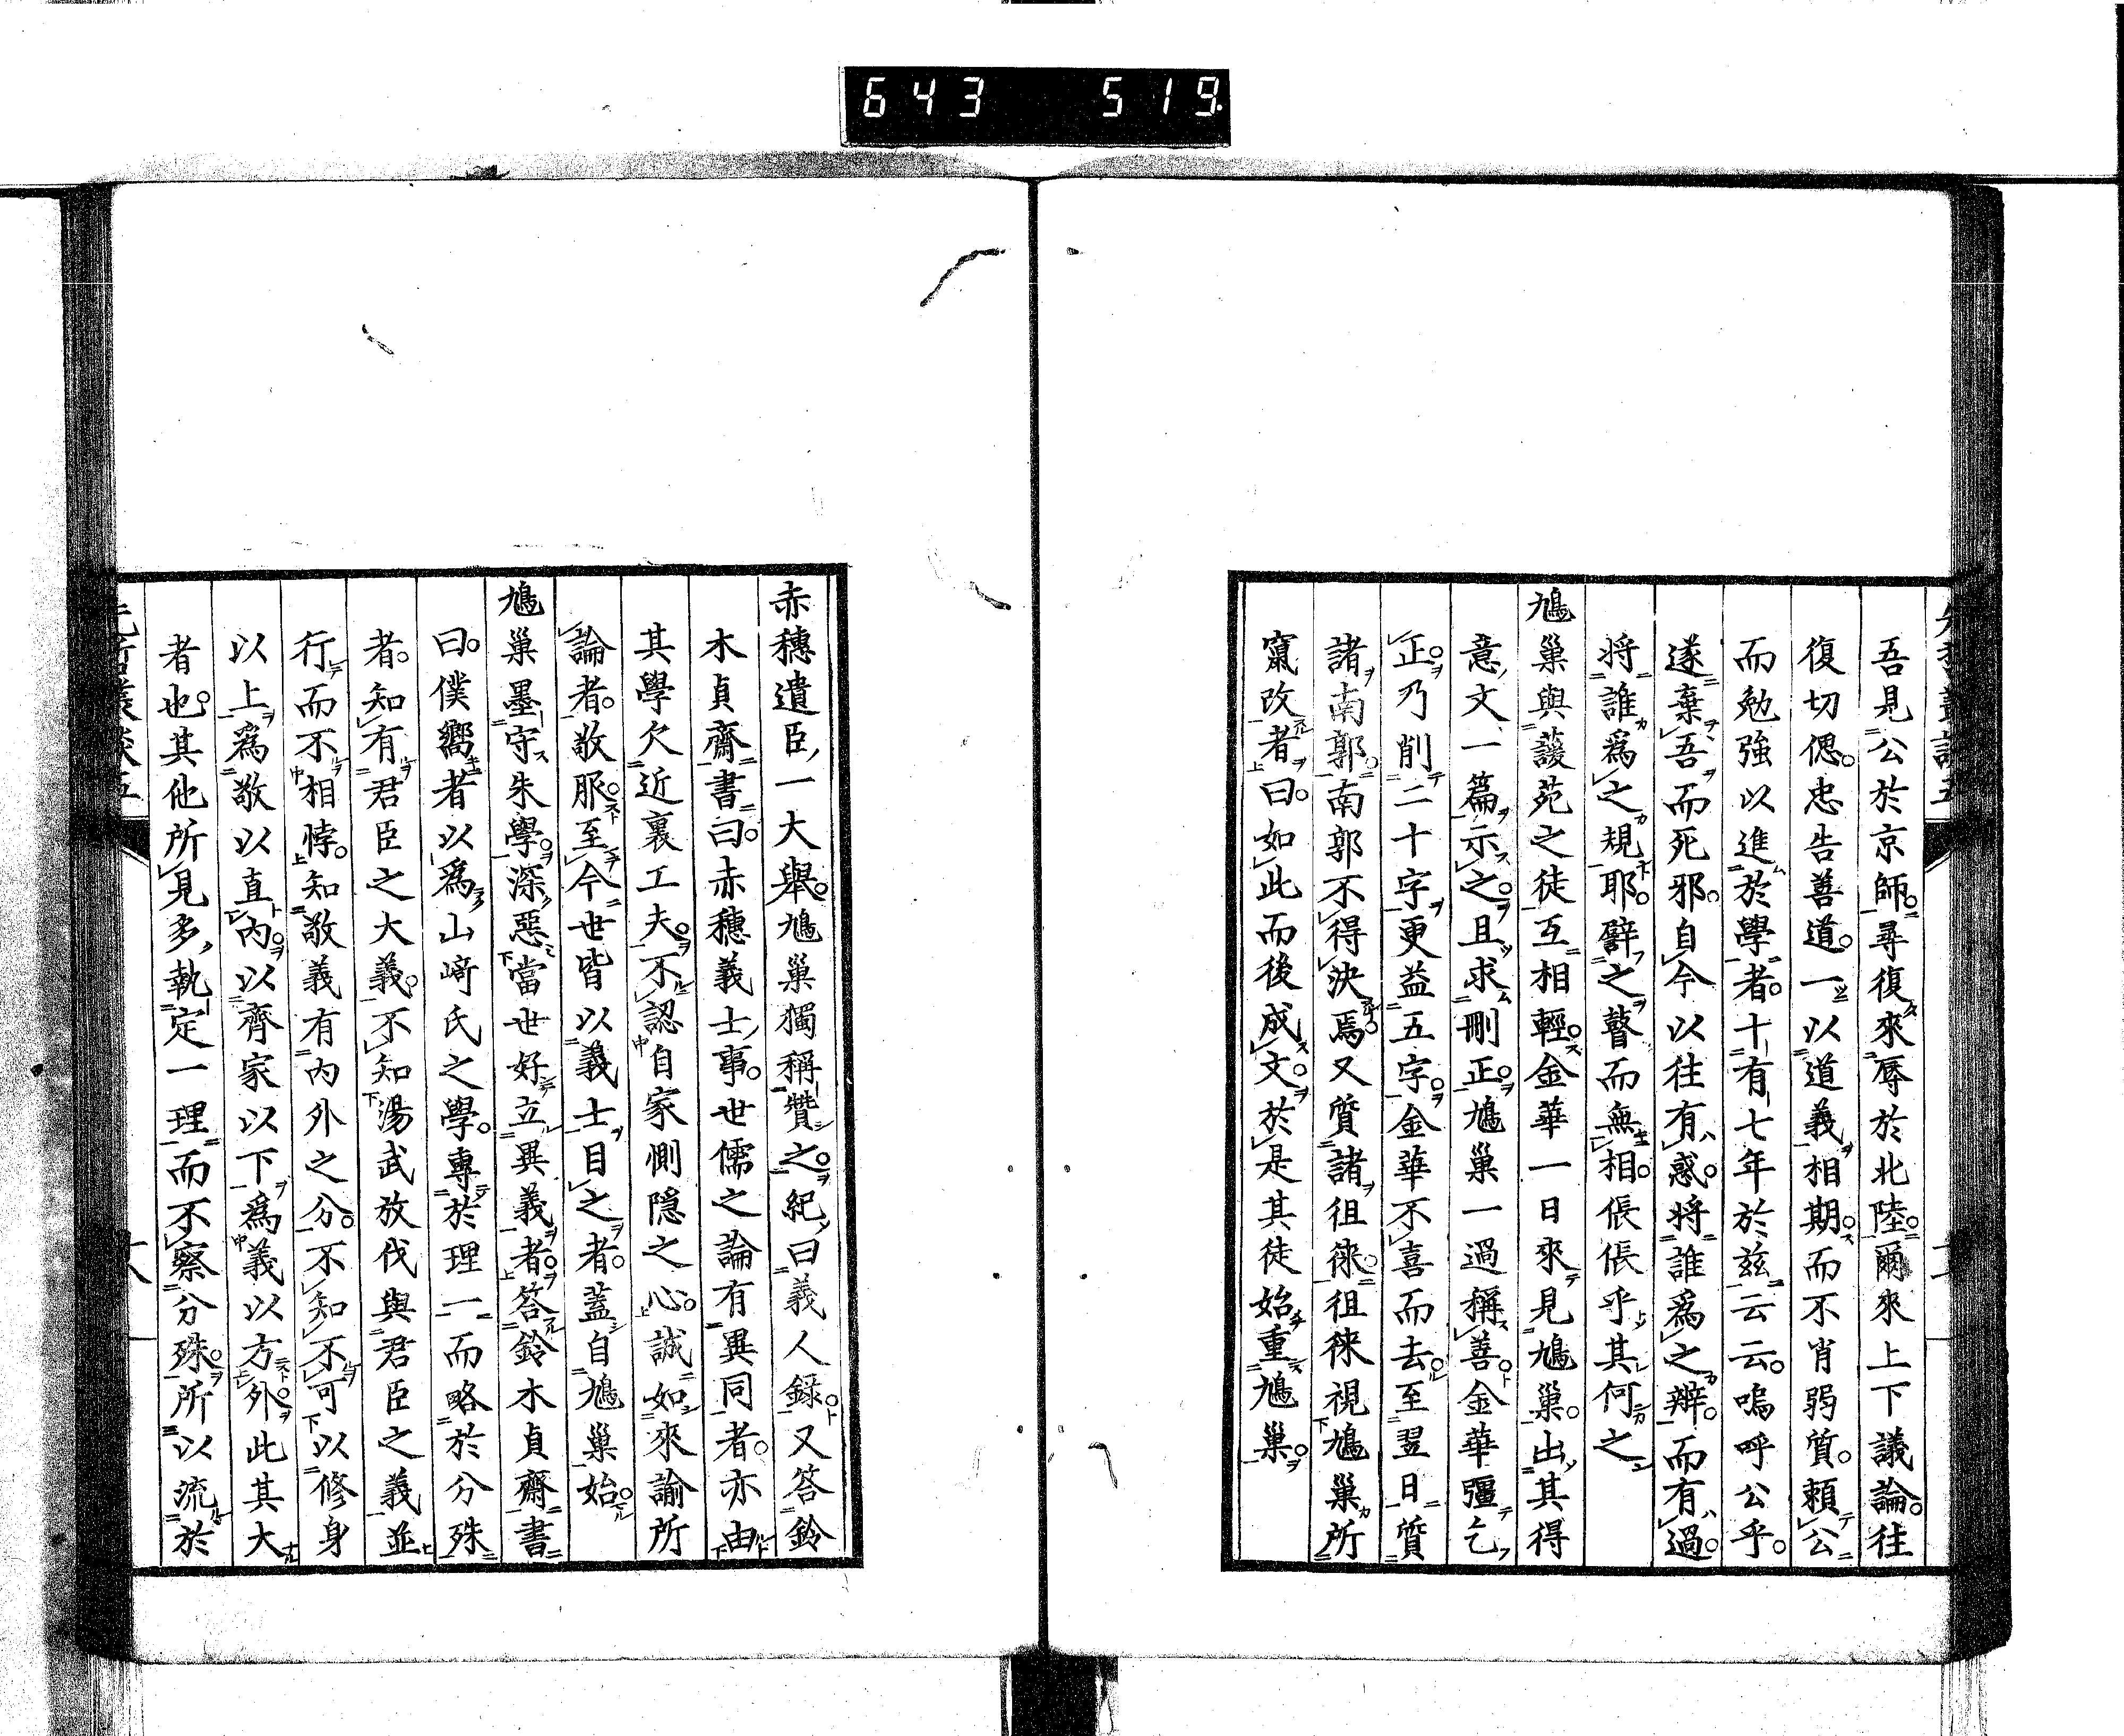 643 519
吾見公於京師。尋復來辱於北陸。爾來上下議論。往
復切偲。忠告善道。一以道義相期。而不肖弱質。賴公
而勉強以進於學者。十有七年於茲云云。嗚呼公乎。
遂棄吾而死邪。自今以往有惑。將誰爲之辨。而有過。
將誰爲之規耶。譬之瞽而無相。倀倀乎其何之
鳩巢與蘐苑之徒互相輕。金華一日來見鳩巢。出其得
意文一篇示之。且求刪正。鳩巢一過稱善。金華彊乞
正。乃削二十字更益五字。金華不喜而去。至翌日質
諸南郭。南郭不得決焉。又質諸徂徠。徂徠視鳩巢所
竄改者曰。如此而後成文。於是其徒始重鳩巢。
赤穗遺臣一大舉。鳩巢獨稱贊之。紀曰義人錄。又答鈴
木貞齋書曰。赤穗義士事。世儒之論有異同者。亦由
其學欠近裏工夫。不認自家惻隱之心。誠如來諭所
論者。敬服。至今世皆以義士目之者。蓋自鳩巢始。
鳩巢墨守朱學。深惡當世好立異義者。答鈴木貞齋書
曰。僕嚮者以爲山﨑氏之學。專於理一而略於分殊
者。知有君臣之大義。不知湯武放伐與君臣之義並
行而不相悖。知敬義有內外之分。不知不可以修身
以上爲敬以直內。以齊家以下爲義以方外。此其大
者也。其他所見多執定一理而不察分殊。所以流於